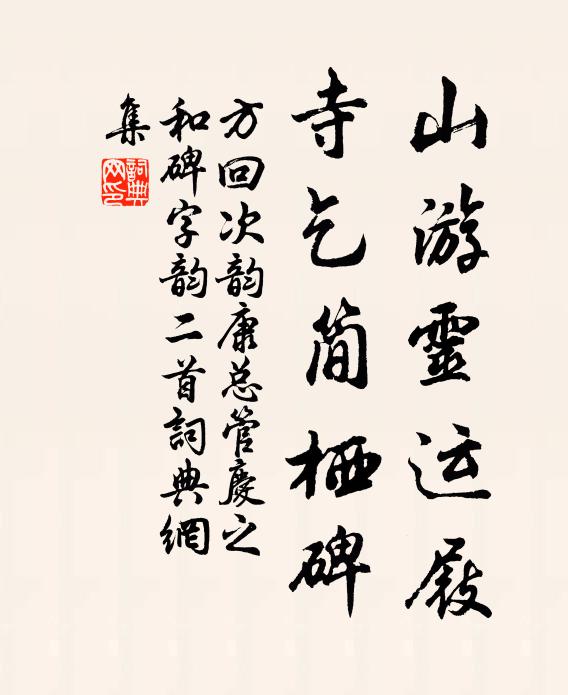 山游靈运屐
寺乞简栖碑
方回次韵康总管慶之
和碑字韵二首詞典網
集
詞典
网印